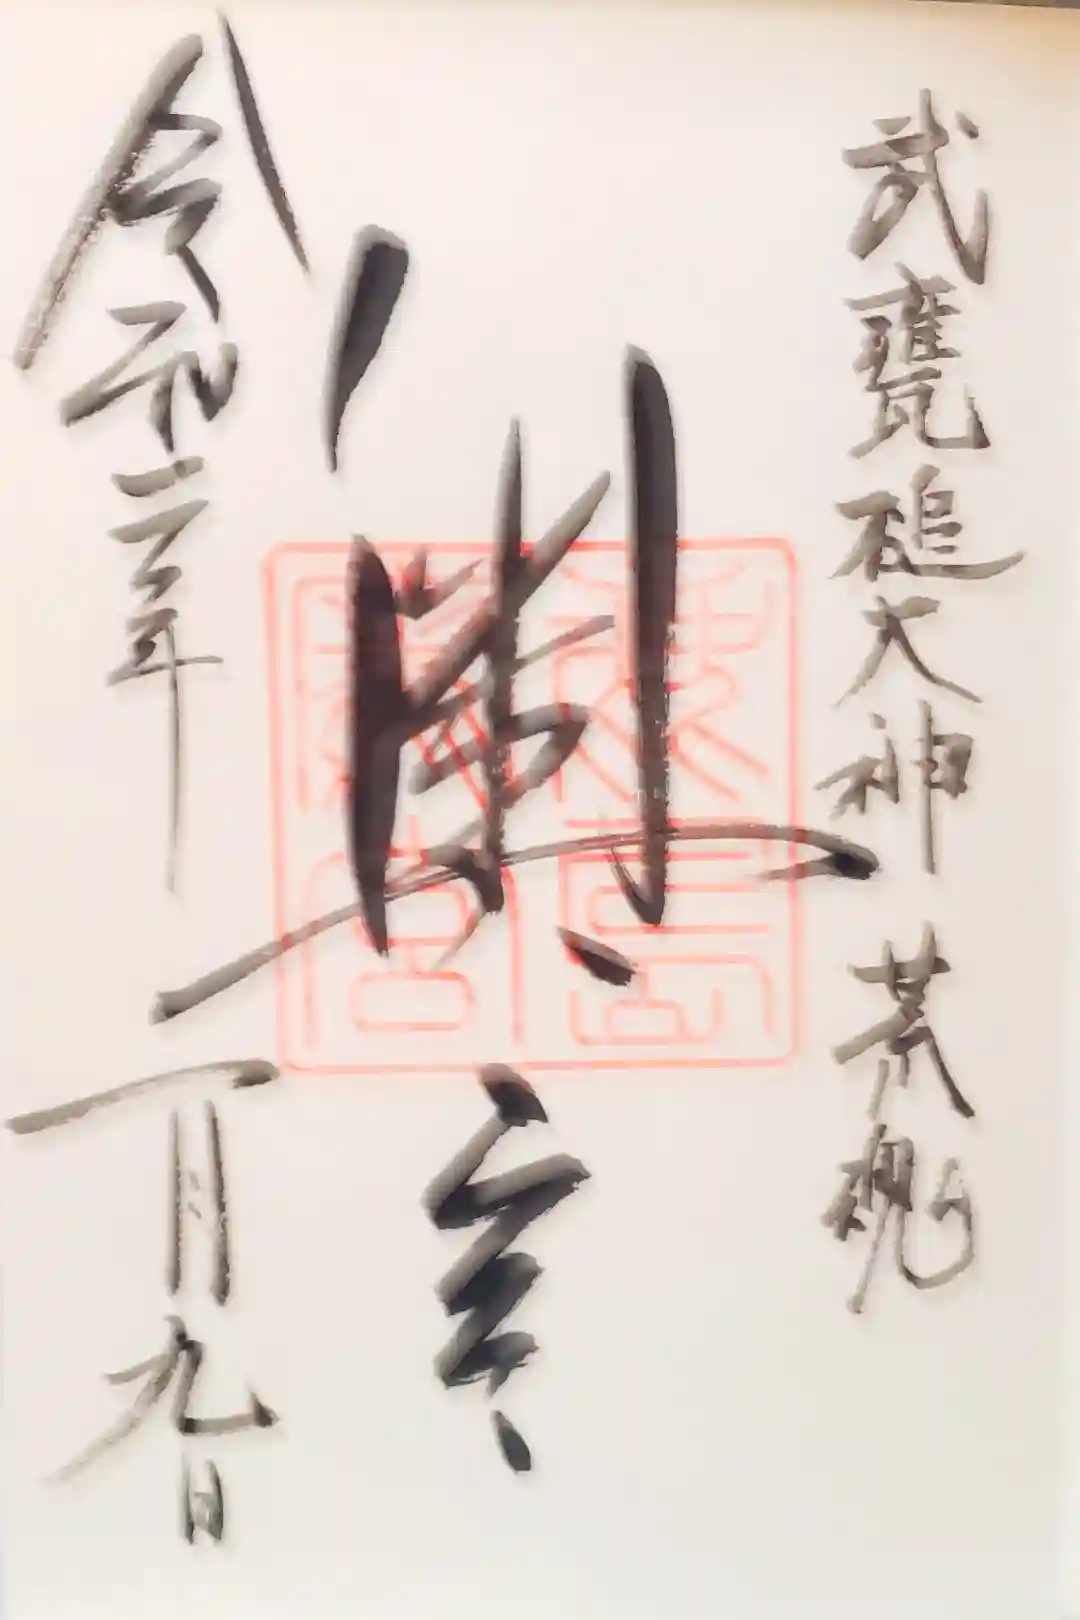 武甕槌大神 荒魂
奥宮
令和二年一月九日